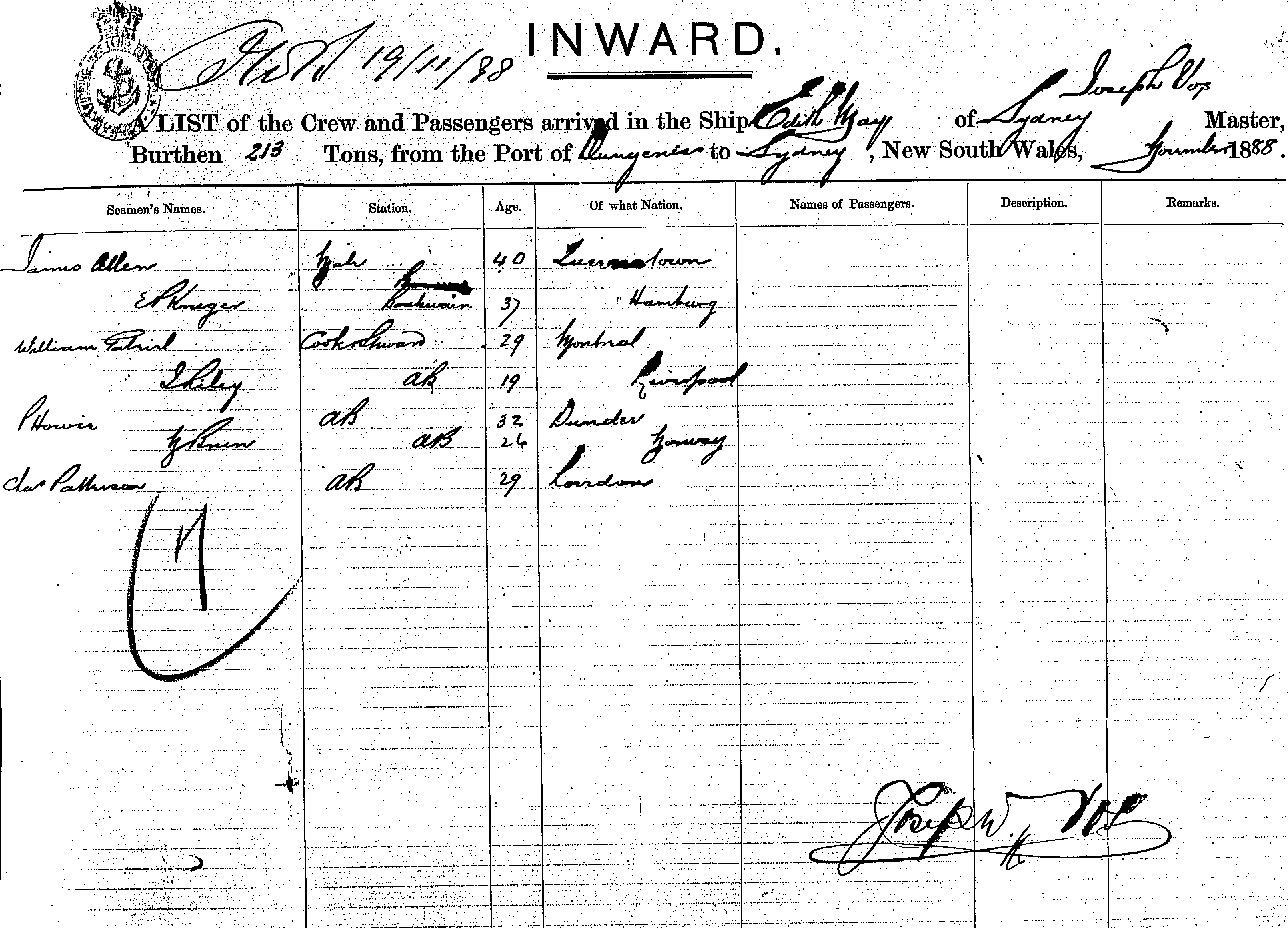 INWARD.
19/11/88
Joseph Vos
A LIST of the Crew and Passengers arrived in the Ship Edith May of Sydney Master,
Burthen 213 Tons, from the Port of Dungeness to Sydney, New South Wales, November 1888.
Seamen's Names. Station. Age. Of what Nation. Names of Passengers. Description. Remarks.
James Allen Mate 40 Queenstown
E P Kruger 37 Hamburg
William 29 Montreal
Riley AB 19 Liverpool
P Howie AB 32 Dundee
AB 26 Norway
Chas Patterson AB 29 London
Joseph W. Vos